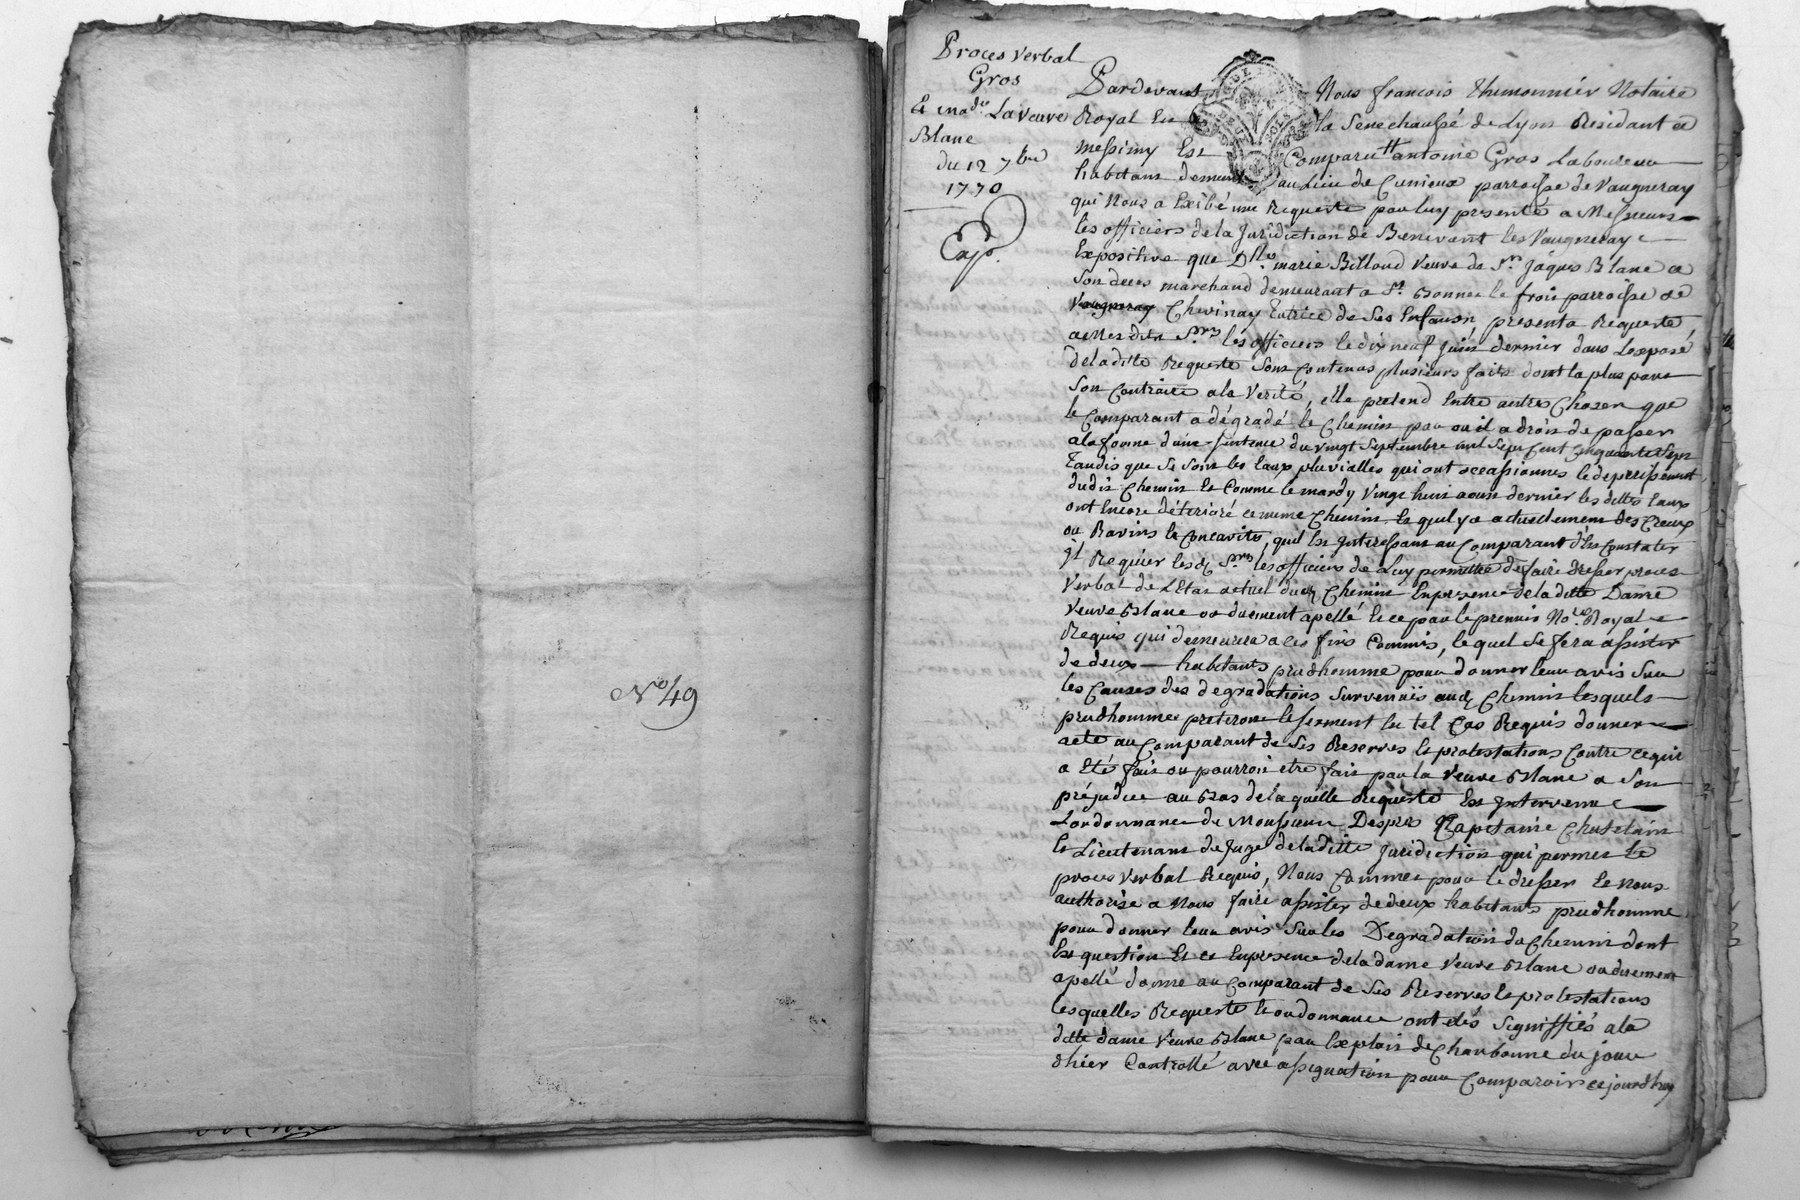 No 49
Proces verbal
Gros
Et mad.e La Veuve
Blanc
du 12 7bre
1770
Exp.
Pardevant Nous françois Thimonnier Notaire
Royal En la Senechaussé de Lyon Residant a
messimy Est Comparu tt antoine Gros Laboureur
habitant demeurt au Lieu de Cunieux parroisse de Vaugneray
qui Nous a Exibé une Requeste par luy presenté a Messieurs
les officiers de la Juridiction de Benevant les Vaugneray
Expositive que D.lle marie Billoud Veuve de S.r Jâques Blanc a
Son deces marchand demeurant a St. Bonnet le froit parroisse de
Chevinay Tutrice de Ses Enfants, presenta Requeste
a mes dits S.rs les officiers le dix neuf Juin dernier dans Lexposé
de la ditte Requeste Sont Contenus plusieurs faits dont la plus part
Son Contraire a la Verité, elle pretend Entre autres Choses que
le Comparant a dégradé le Chemin par ou il a droit de passer
a la forme d'une Sentence du vingt Septembre mil Sept Cent Cinquante Sept
Tandis que Se Sont les Eaux pluvialles qui ont occasionnes le deperissement
dudit Chemin Et Comme le mardy Vingt huit aoust dernier les dittes Eaux
ont Encore déterioré ce meme Chemin Et quil y a actuellement des Creux
ou Ravins Et Concavités, quil Est Interessant au Comparant d'En Constater
Il Requier lesd. S.rs les officiers de Luy permettre de faire dresser proces
Verbal de LEtat actuel dud. Chemin En presence de la ditte Dame
Veuve Blanc ou duement apellé Et ce par le premier No.re Royal
Requis qui demeurera a ces fins Commis, lequel Se fera assister
de deux habitants prudhomme pour donner leur avis Sur
les Causes des degradations Survenuës aud. Chemin lesquels
prudhommes preteront le Serment En tel Cas Requis donner
acte au Comparant de Ses Reserves Et protestations Contre ce qui
a Eté fait ou pourroit etre fait par la Veuve Blanc a Son
préjudice au Bas de laquelle Requeste Est Intervenue
Lordonnance de Monsieur Despres Capitaine Chatelain
Et Lieutenant de Juge de la ditte Juridiction qui permet Le
proces verbal Requis, Nous Commet pour le dresser Et nous
authorise a Nous faire assister de deux habitants prudhomme
pour donner leur avis Sur les Degradation du Chemin dont
Est question Et ce En presence de la dame Veuve Blanc ou duement
apellé donne au Comparant de Ses Reserves Et protestations
Lesquelles Requeste Et ordonnance ont etés Signiffiés a la
ditte dame Veuve Blanc par Exploit de Charbonne du jour
dhier Controllé avec assignation pour Comparoir cejourdhuy